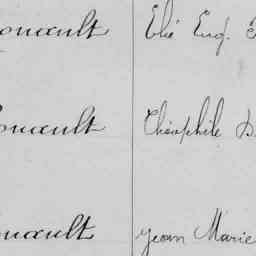 onault Elie Eug.
onault Théophile D.
onault Jean Marie